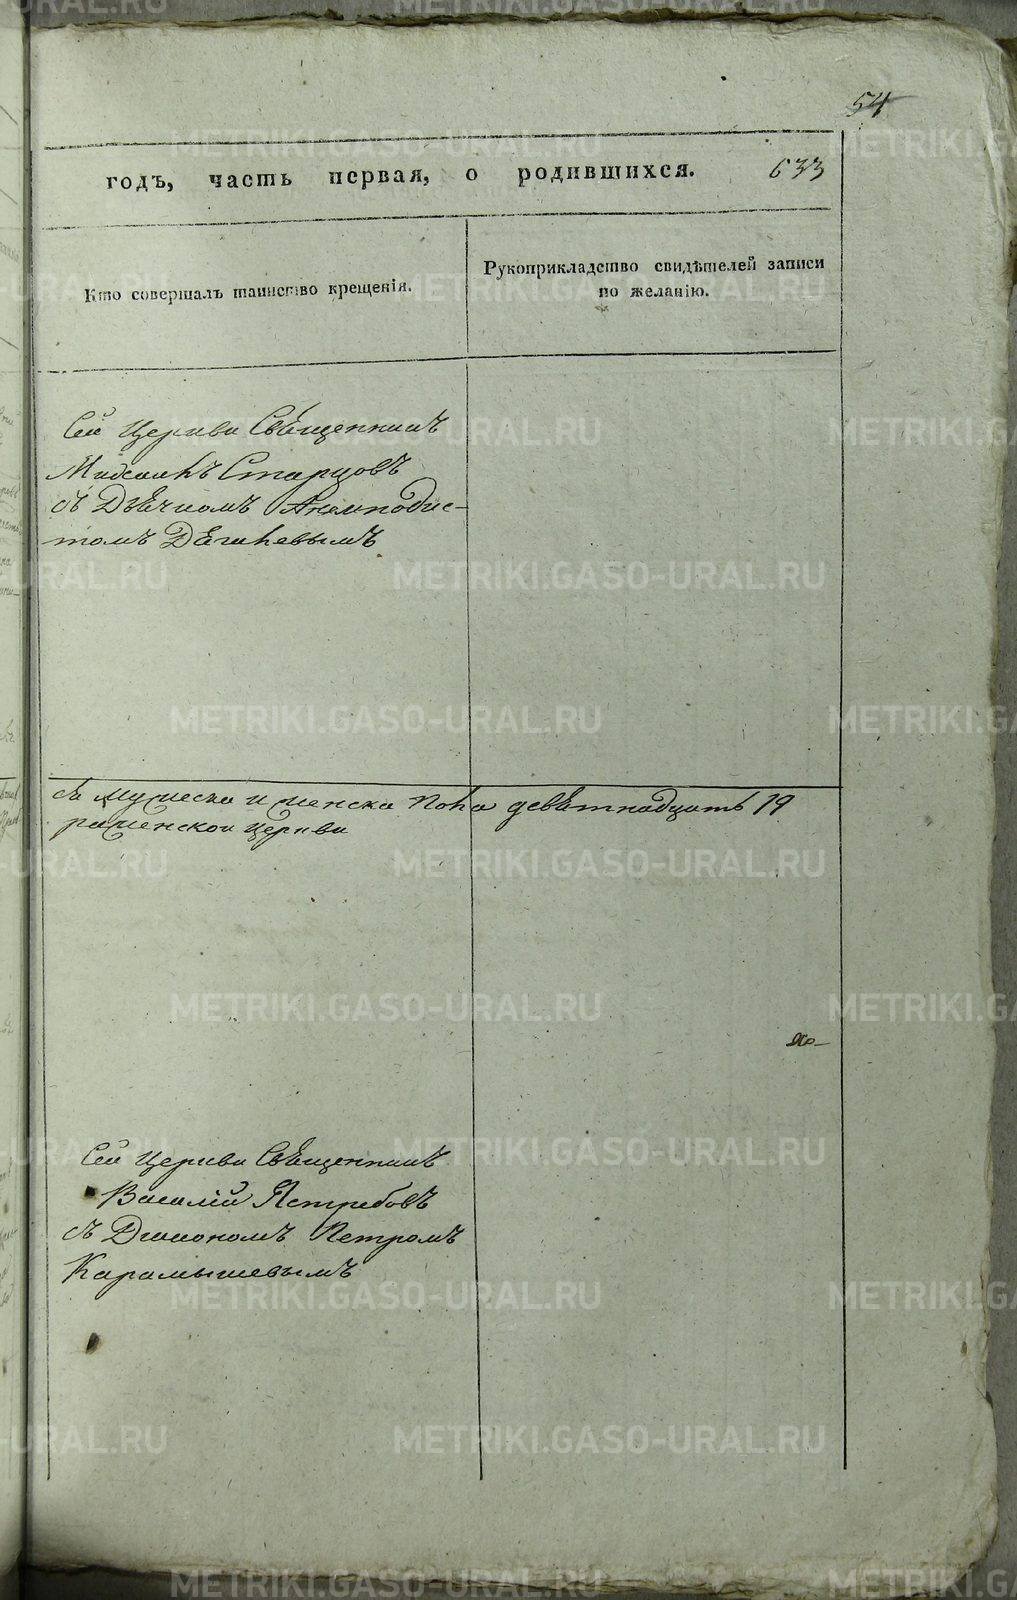 54
годъ, часть первая, о родившихся. 633
Кто совершалъ таинство крещенія.
Рукоприкладство свидѣтелей записи
по желанію.
Сей Церкви Священникъ
Старцовъ
съ Дьячкомъ Анемподис-
томъ
мужеска и женска пола девѣтнадцать 19
церкви
Сей Церкви Священникъ
Василій Ястребовъ
съ Діакономъ Петромъ
Карамышевымъ
METRIKI.GASO-URAL.RU